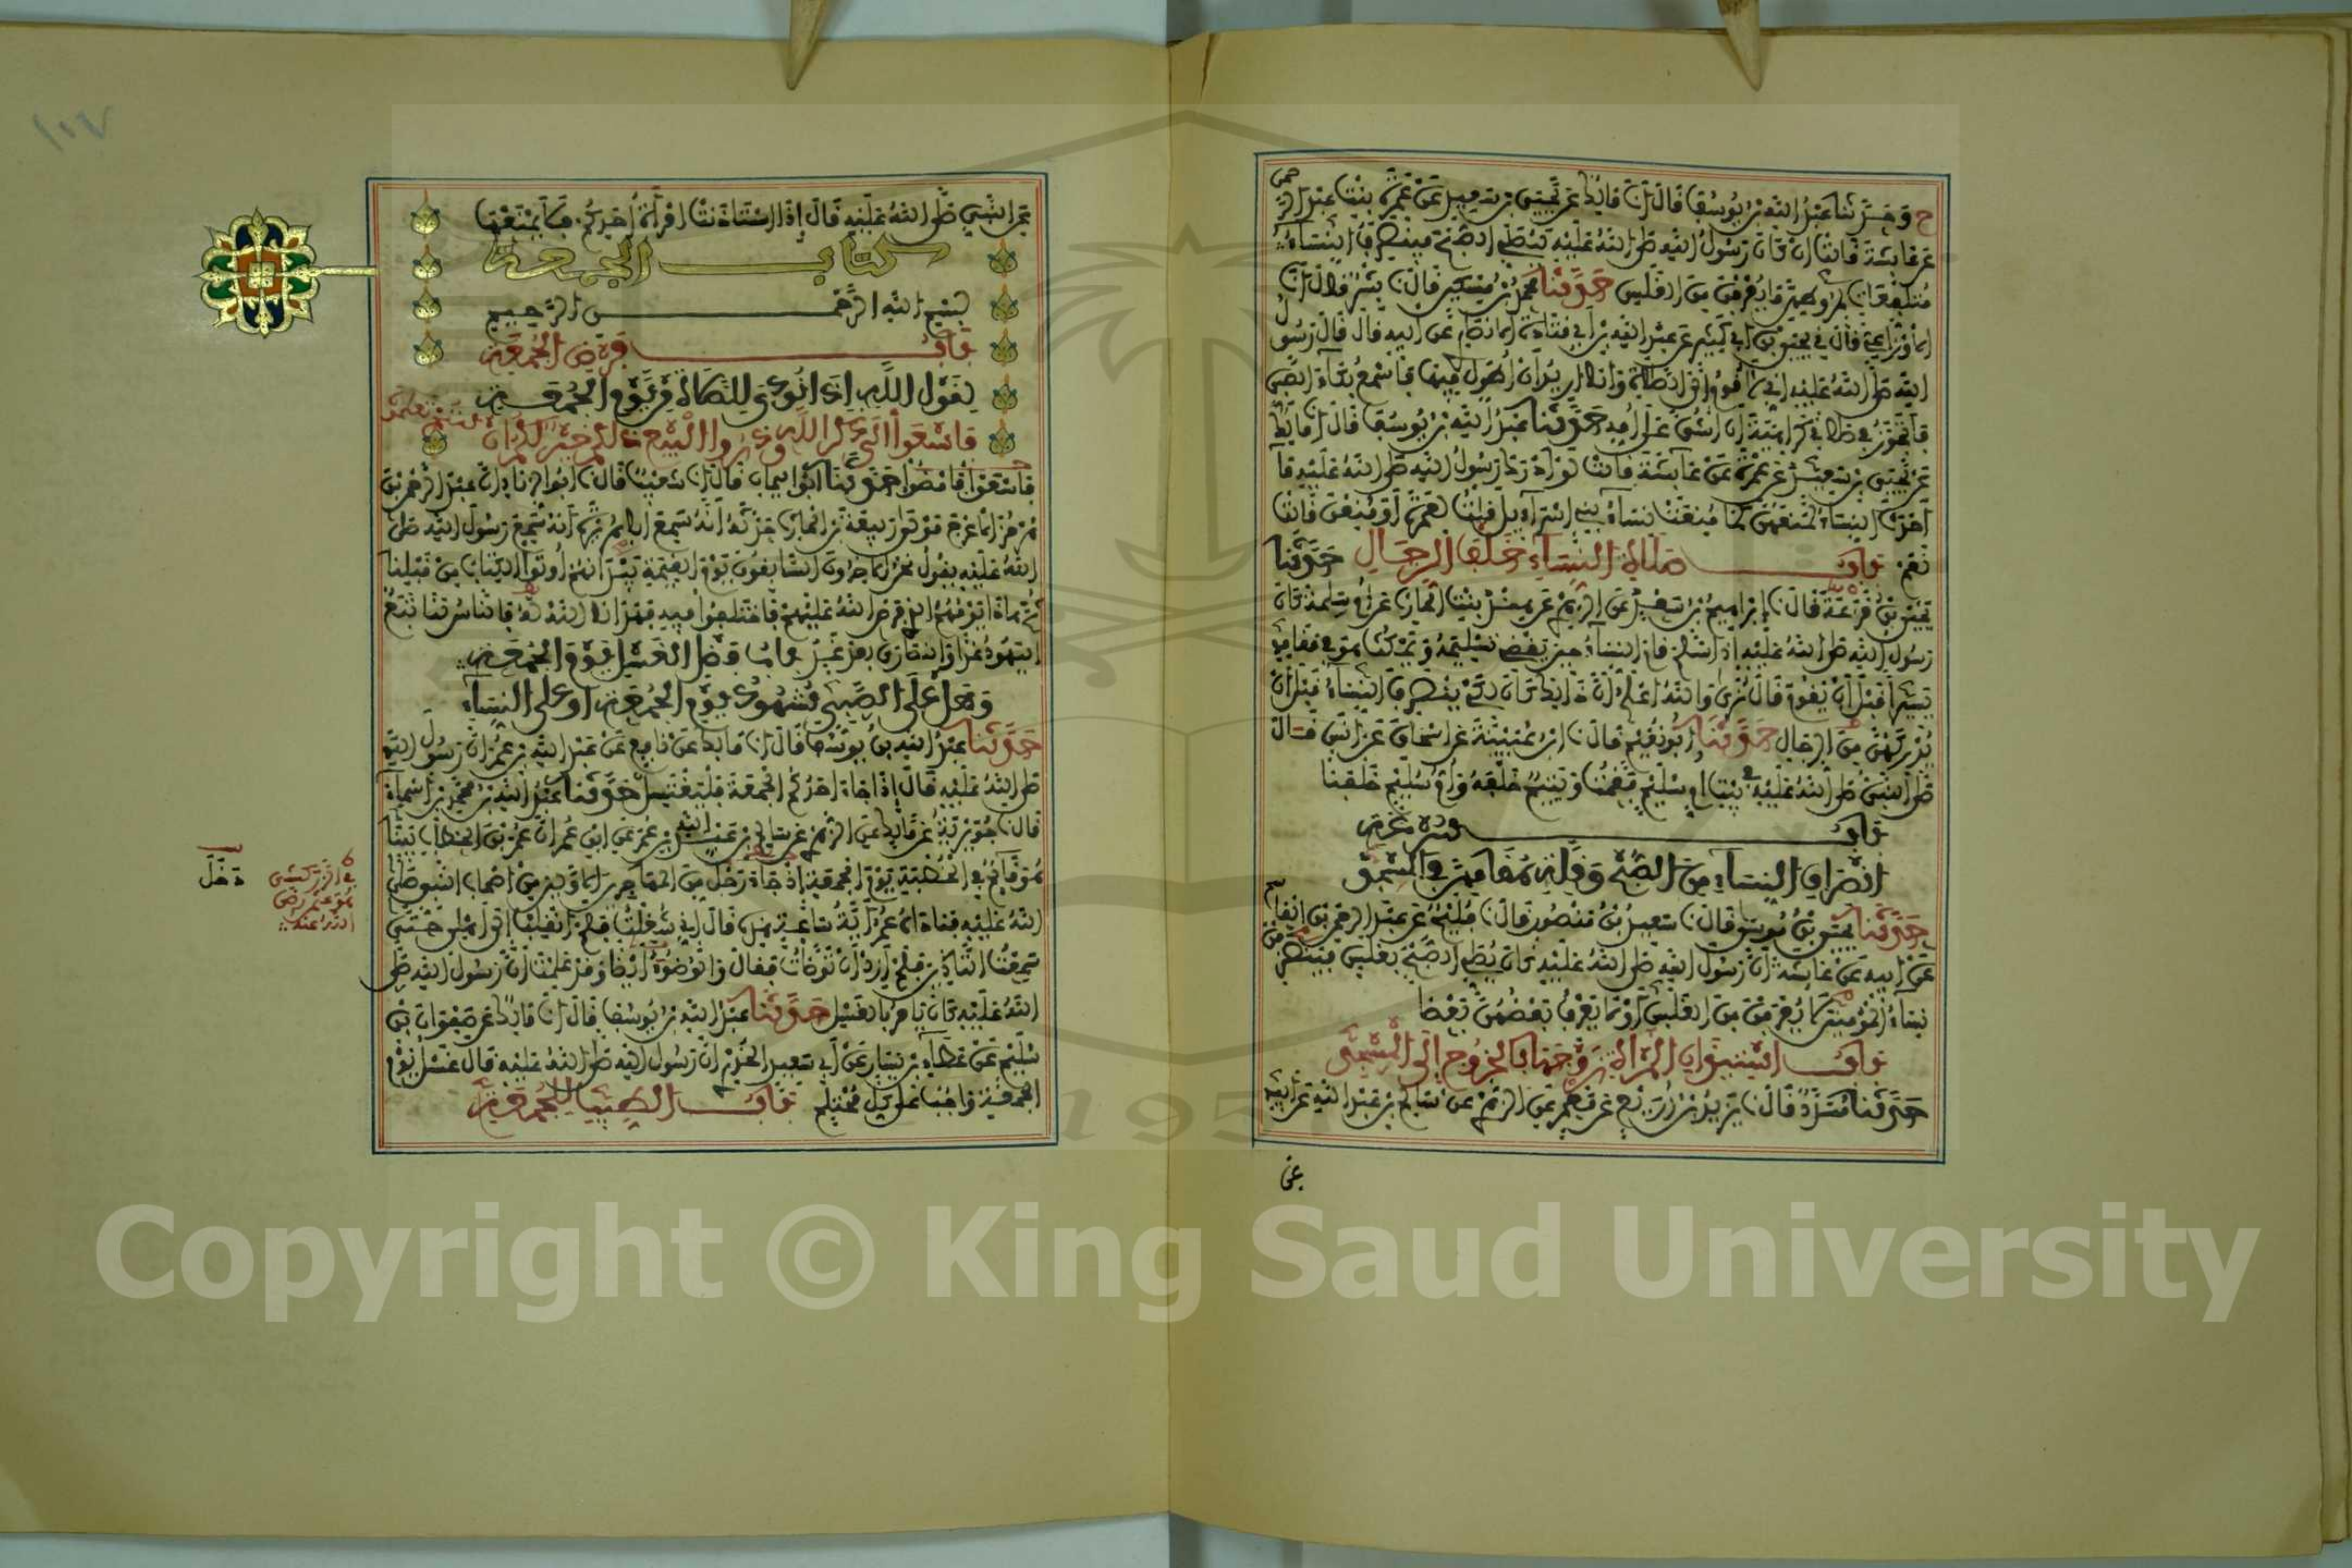 ح وحدثنا عبد الله بن يوسف قال انا مالك عن يحيى بن سعيد عن عمرة بنت عبد الرحمن
عن عائشة قالت ان كان رسول الله صلى الله عليه ليصلي الصبح فينصرف النساء
متلفعات بمروطهن ما يعرفن من الغلس حدثنا محمد بن مسكين قال نا بشر قال انا
الاوزاعي قال ني يحيى بن ابي كثير عن عبد الله بن ابي قتادة الانصاري عن ابيه قال قال رسول
الله صلى الله عليه اني لأقوم الى الصلاة وانا اريد ان اطول فيها فاسمع بكاء الصبي
فاتجوز في صلاتي كراهية ان اشق على امه حدثنا عبد الله بن يوسف قال انا مالك
عن يحيى بن سعيد عن عمرة عن عائشة قالت لو ادرك رسول الله صلى الله عليه ما
احدث النساء لمنعهن كما منعت نساء بني اسراءيل قلت لعمرة او منعن قالت
نعم باب صلاة النساء خلف الرجال حدثنا
يحيى بن قزعة قال نا ابراهيم بن سعد عن الزهري عن هند بنت الحارث عن ام سلمة كان
رسول الله صلى الله عليه اذا سلم قام النساء حين يقضي تسليمه ويمكث هو في مقامه
يسيرا قبل ان يقوم قال نرى والله اعلم ان ذلك كان لكي ينصرف النساء قبل ان
يدركهن من الرجال حدثنا ابو نعيم قال نا ابن عيينة عن اسحاق عن انس قال
صلى النبي صلى الله عليه في بيت ام سليم فقمت ويتيم خلفه وام سليم خلفنا
باب سرعة
انصراف النساء من الصبح وقلة مقامهن في المسجد
حدثنا يحيى بن موسى قال نا سعيد بن منصور قال نا فليح عن عبد الرحمن بن القاسم
عن ابيه عن عائشة ان رسول الله صلى الله عليه كان يصلي الصبح بغلس فينصرفن
نساء المؤمنين لا يعرفن من الغلس او لا يعرف بعضهن بعضا
باب استيذان المرأة زوجها بالخروج الى المسجد
حدثنا مسدد قال نا يزيد بن زريع عن معمر عن الزهري عن سالم بن عبد الله عن ابيه
عن
عن النبي صلى الله عليه قال اذا استاذنت امرأة احدكم فلا يمنعها
كتاب الجمعة
بسم الله الرحمن الرحيم
باب فرض الجمعة
لقول الله اذا نودي للصلاة من يوم الجمعة
فاسعوا الى ذكر الله وذروا البيع ذلكم خير لكم ان كنتم تعلمون
فاسعوا فامضوا حدثنا ابو اليمان قال انا شعيب قال نا ابو الزناد ان عبد الرحمن بن
هرمز الاعرج مولى ربيعة بن الحارث حدثه انه سمع ابا هريرة انه سمع رسول الله صلى
الله عليه يقول نحن الاخرون السابقون يوم القيمة بيد انهم اوتوا الكتاب من قبلنا
ثم هذا يومهم الذي فرض الله عليهم فاختلفوا فيه فهدانا الله له فالناس لنا تبع
اليهود غدا والنصارى بعد غد باب فضل الغسل يوم الجمعة
وهل على الصبي شهود يوم الجمعة او على النساء
حدثنا عبد الله بن يوسف قال انا مالك عن نافع عن عبد الله بن عمر ان رسول الله
صلى الله عليه قال اذا جاء احدكم الجمعة فليغتسل حدثنا عبد الله بن محمد بن اسماء
قال نا جويرية عن مالك عن الزهري عن سالم بن عبد الله بن عمر عن ابن عمر ان عمر بن الخطاب بينا
هو قائم في الخطبة يوم الجمعة اذ جاء رجل من المهاجرين الاولين من اصحاب النبي صلى
الله عليه فناداه عمر اية ساعة هذه قال اني شغلت فلم انقلب الى اهلي حتى
سمعت التاذين فلم ازد ان توضات فقال والوضوء ايضا وقد علمت ان رسول الله صلى
الله عليه كان يامر بالغسل حدثنا عبد الله بن يوسف قال انا مالك عن صفوان بن
سليم عن عطاء بن يسار عن ابي سعيد الخدري ان رسول الله صلى الله عليه قال غسل يوم
الجمعة واجب على كل محتلم باب الطيب للجمعة
دخل
في الزركشي
هو عثمر رضي
الله عنه
Copyright © King Saud University
1957